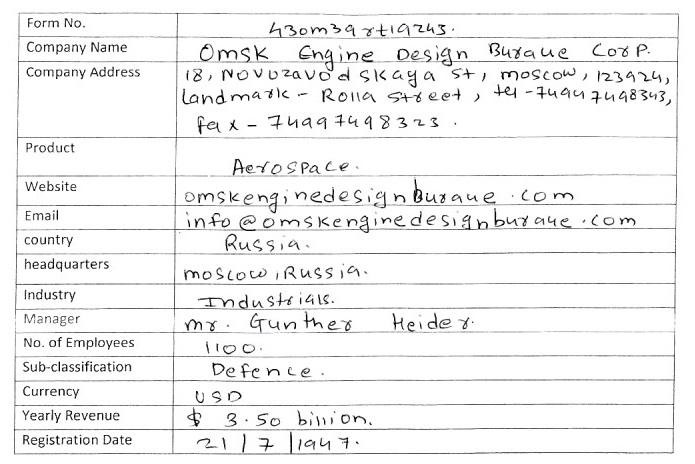 Form No. 430m39rt19243.
Company Name Omsk Engine Design Buraue Corp.
Company Address 18, Novozavodskaya st, moscow, 123924,
Landmark - Rolla street, tel - 74947498343,
fax - 74997498323.
Product Aerospace.
Website omskenginedesignburaue.com
Email info@omskenginedesignburaue.com
country Russia.
headquarters moscow, Russia.
Industry Industrials.
Manager mr. Gunther Heider.
No. of Employees 1100.
Sub-classification Defence.
Currency USD
Yearly Revenue $ 3.50 billion.
Registration Date 21/7/1947.